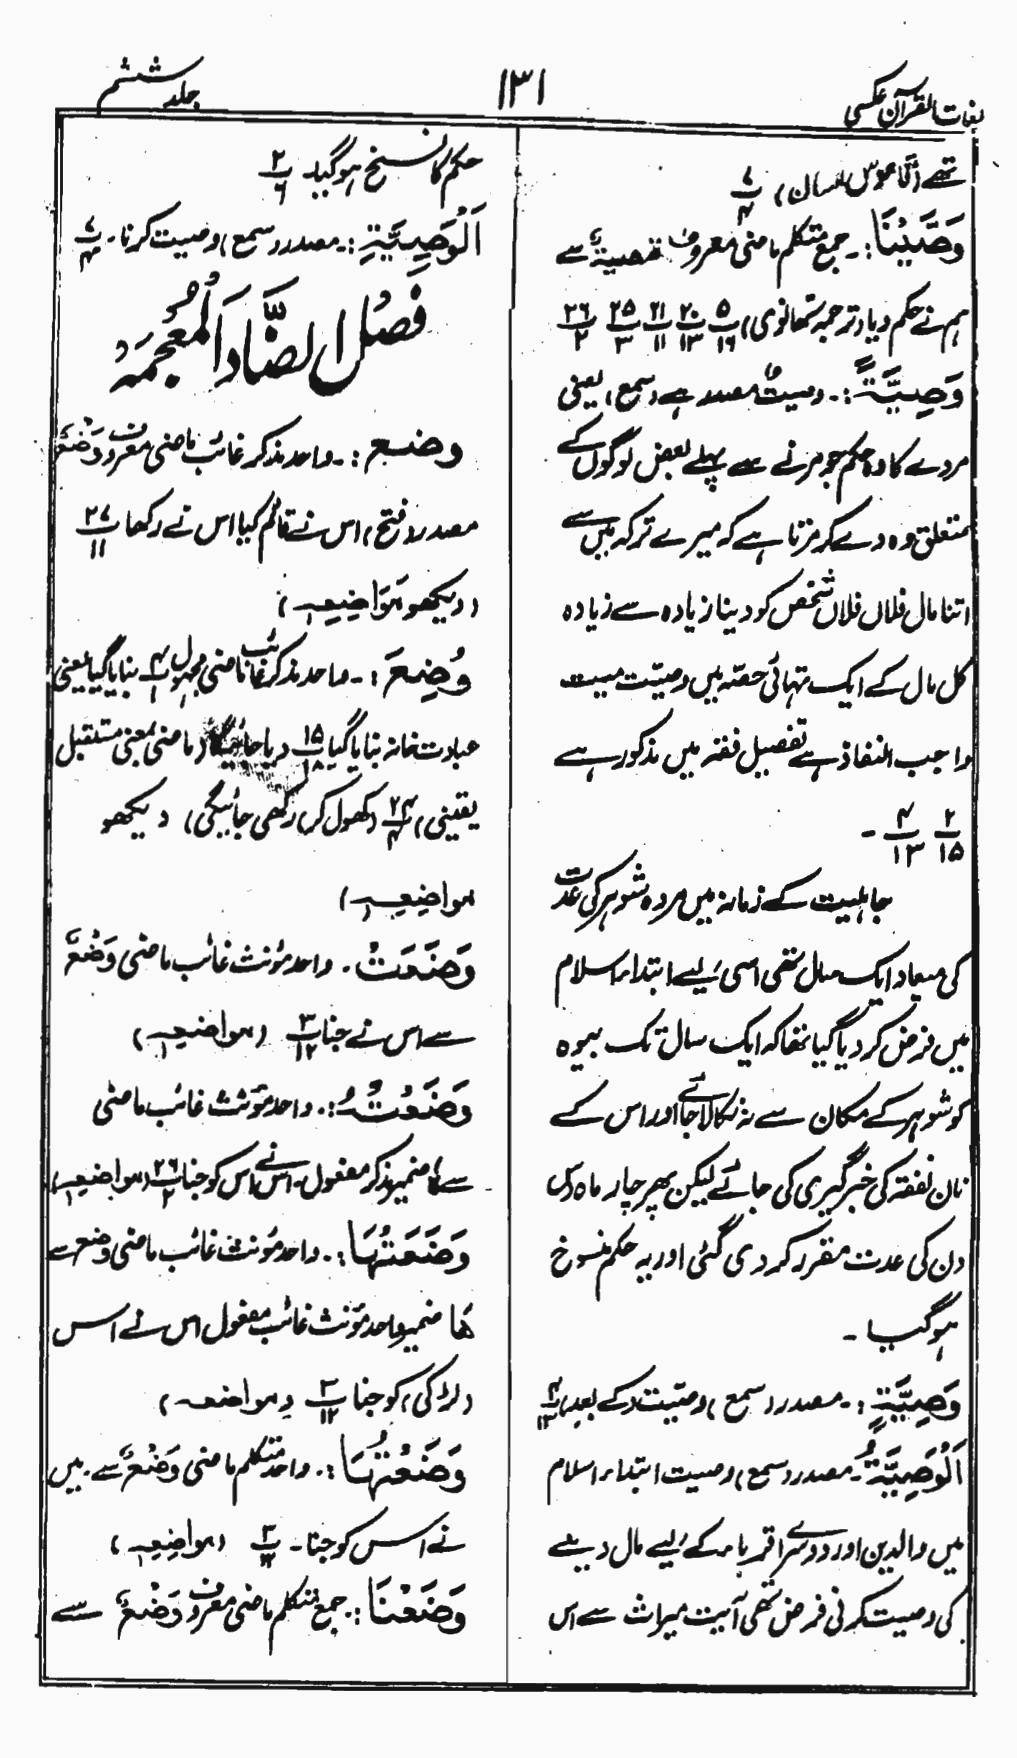 لغات القرآن عکسی
۱۳۱
جلد ششم
تھے (قاموس لسان) ۷/۴
وَصَّیْنَا:۔ جمع متکلم ماضی معروف توصیۃٌ سے
ہم نے حکم دیا (ترجمہ تھانوی) ۵/۱۶ ۲۰/۱۳ ۲۱/۱۱ ۲۵/۳ ۲۶/۲
وَصِیَّۃً:۔ وصیتٌ مصدر ہے (سمع) یعنی
مردے کا وہ حکم جو مرنے سے پہلے بعض لوگوں کے
متعلق وہ دے کر مرتا ہے کہ میرے ترکہ میں سے
اتنا مال فلاں فلاں شخص کو دینا زیادہ سے زیادہ
کل مال کے ایک تہائی حصہ میں وصیّت میت
واجب النفاذ ہے تفصیل فقہ میں مذکور ہے
۲/۱۵ ۴/۱۳ ۔
جاہلیت کے زمانہ میں مردہ شوہر کی عدت
کی میعاد ایک سال تھی اسی لیے ابتداء اسلام
میں فرض کر دیا گیا تھا کہ ایک سال تک بیوہ
کو شوہر کے مکان سے نہ نکالا جائے اور اس کے
نان نفقہ کی خبر گیری کی جائے لیکن پھر چار ماہ دس
دن کی عدت مقرر کر دی گئی اور یہ حکم منسوخ
ہو گیا ۔
وَصِیَّۃٍ:۔ مصدر (سمع) وصیّت (کے بعد) ۴/۱۳
اَلْوَصِیَّۃُ۔ مصدر (سمع) وصیت ابتداء اسلام
میں والدین اور دوسرے اقرباء کے لیے مال دینے
کی وصیت کرنی فرض تھی آیت میراث سے اس
حکم کا نسخ ہو گیا۔ ۲/۶
اَلْوَصِیَّۃِ:۔ مصدر (سمع) وصیت کرنا۔ ۷/۴
فَصْلُ الضَّادِ الْمُعْجَمَہْ
وضع:۔ واحد مذکر غائب ماضی معروف وَضْعٌ
مصدر (فتح) اس نے قائم کیا اس نے رکھا ۲۷/۱۱
(دیکھو مَوَاضِعِہٖ)
وُضِعَ:۔ واحد مذکر غائب ماضی مجہول ۴/۱ بنایا گیا یعنی
عبادت خانہ بنایا گیا ۱۵/۱۸ دیا جائیگا (ماضی بمعنی مستقبل
یقینی) ۲۴/۴ (کھول کر) رکھی جائیگی) دیکھو
مواضِعِہٖ)
وَضَعَتْ۔ واحد مؤنث غائب ماضی وَضْعٌ
سے اس نے جنا ۳/۱۲ (مواضعِہٖ)
وَضَعَتْہُ:۔ واحد مؤنث غائب ماضی
سے ہٗ ضمیر مذکر مفعول۔ اس نے اس کو جنا ۲۶/۲ (مواضِعِہٖ)
وَضَعَتْہَا:۔ واحد مؤنث غائب ماضی وضع سے
ھَا ضمیر واحد مؤنث غائب مفعول اس نے اس
(لڑکی) کو جنا ۳/۱۲ (مواضعہ)
وَضَعْتُہَا:۔ واحد متکلم ماضی وَضْعٌ سے۔ میں
نے اس کو جنا۔ ۳/۱۲ (مواضِعِہٖ)
وَضَعْنَا:۔ جمع متکلم ماضی معروف وَضْعٌ سے